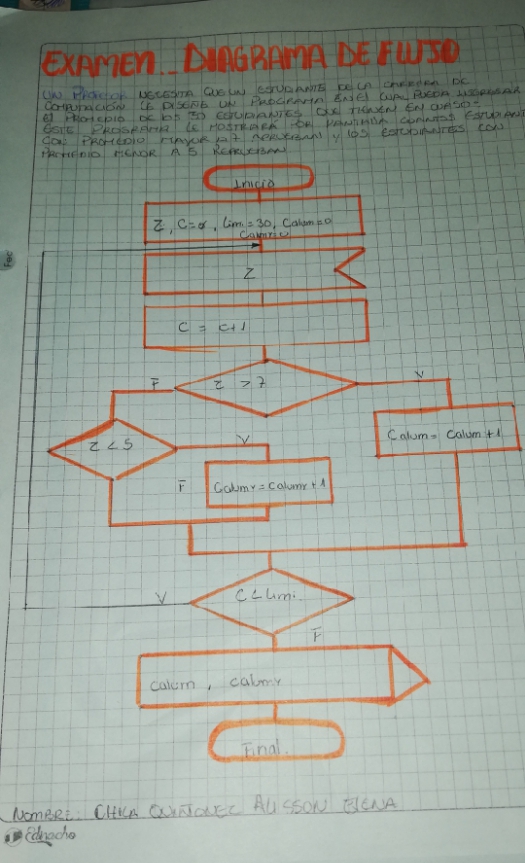 EXAMEN_ DIAGRAMA DE FLUJO
UN PROFESOR NECESITA QUE UN ESTUDIANTE DE LA CARRERA DE
COMPUTACIÓN LE DISEÑE UN PROGRAMA EN EL CUAL PUEDA INGRESAR
El PROMEDIO DE LOS 30 ESTUDIANTES QUE TIENEN EN CURSO=
ESTE PROGRAMA LE MOSTRARÁ POR PANTALLA CUANTOS ESTUDIANT
CON PROMEDIO MAYOR a 7 APRUEBAN y LOS ESTUDIANTES CON
PROMEDIO MENOR A 5 REPRUEBAN
Inicio
Z, C=0, lim=30, Calum=0
Z
C = C+1
Z > 7
F
V
Z < 5
V
Calum= Calum+1
F
Calumr=Calumr+1
C<Limi
V
F
Calum, Calumr
Final.
NOMBRE: CHICA QUIÑONEZ ALISSON ELENA